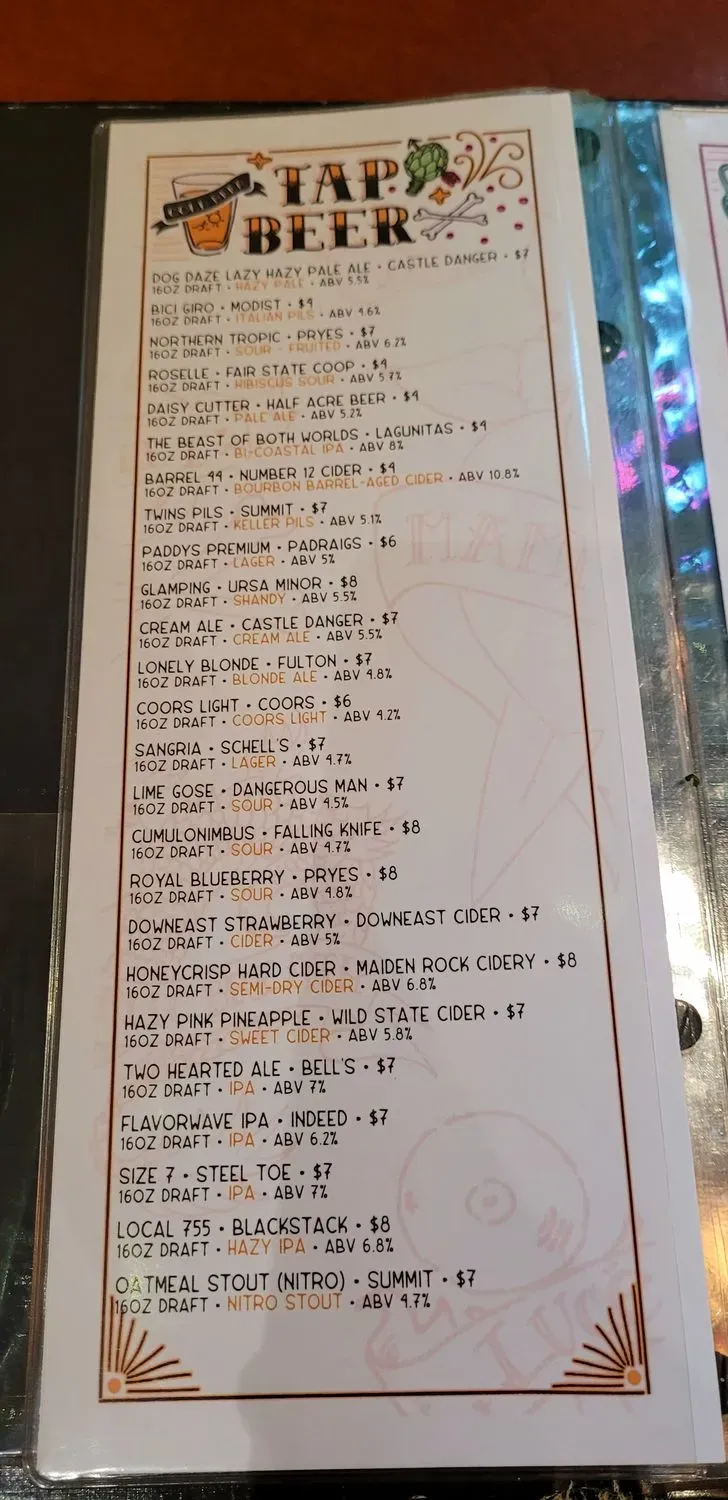 TAP
BEER
DOG DAZE LAZY HAZY PALE ALE • CASTLE DANGER • $7
16OZ DRAFT • HAZY PALE • ABV 5.5%
BICI GIRO • MODIST • $4
16OZ DRAFT • ITALIAN PILS • ABV 4.6%
NORTHERN TROPIC • PRYES • $7
16OZ DRAFT • SOUR - FRUITED • ABV 6.2%
ROSELLE • FAIR STATE COOP • $4
16OZ DRAFT • HIBISCUS SOUR • ABV 5.7%
DAISY CUTTER • HALF ACRE BEER • $4
16OZ DRAFT • PALE ALE • ABV 5.2%
THE BEAST OF BOTH WORLDS • LAGUNITAS • $4
16OZ DRAFT • BI-COASTAL IPA • ABV 8%
BARREL 44 • NUMBER 12 CIDER • $4
16OZ DRAFT • BOURBON BARREL-AGED CIDER • ABV 10.8%
TWINS PILS • SUMMIT • $7
16OZ DRAFT • KELLER PILS • ABV 5.1%
PADDYS PREMIUM • PADRAIGS • $6
16OZ DRAFT • LAGER • ABV 5%
GLAMPING • URSA MINOR • $8
16OZ DRAFT • SHANDY • ABV 5.5%
CREAM ALE • CASTLE DANGER • $7
16OZ DRAFT • CREAM ALE • ABV 5.5%
LONELY BLONDE • FULTON • $7
16OZ DRAFT • BLONDE ALE • ABV 4.8%
COORS LIGHT • COORS • $6
16OZ DRAFT • COORS LIGHT • ABV 4.2%
SANGRIA • SCHELL'S • $7
16OZ DRAFT • LAGER • ABV 4.7%
LIME GOSE • DANGEROUS MAN • $7
16OZ DRAFT • SOUR • ABV 4.5%
CUMULONIMBUS • FALLING KNIFE • $8
16OZ DRAFT • SOUR • ABV 4.7%
ROYAL BLUEBERRY • PRYES • $8
16OZ DRAFT • SOUR • ABV 4.8%
DOWNEAST STRAWBERRY • DOWNEAST CIDER • $7
16OZ DRAFT • CIDER • ABV 5%
HONEYCRISP HARD CIDER • MAIDEN ROCK CIDERY • $8
16OZ DRAFT • SEMI-DRY CIDER • ABV 6.8%
HAZY PINK PINEAPPLE • WILD STATE CIDER • $7
16OZ DRAFT • SWEET CIDER • ABV 5.8%
TWO HEARTED ALE • BELL'S • $7
16OZ DRAFT • IPA • ABV 7%
FLAVORWAVE IPA • INDEED • $7
16OZ DRAFT • IPA • ABV 6.2%
SIZE 7 • STEEL TOE • $7
16OZ DRAFT • IPA • ABV 7%
LOCAL 755 • BLACKSTACK • $8
16OZ DRAFT • HAZY IPA • ABV 6.8%
OATMEAL STOUT (NITRO) • SUMMIT • $7
16OZ DRAFT • NITRO STOUT • ABV 4.7%